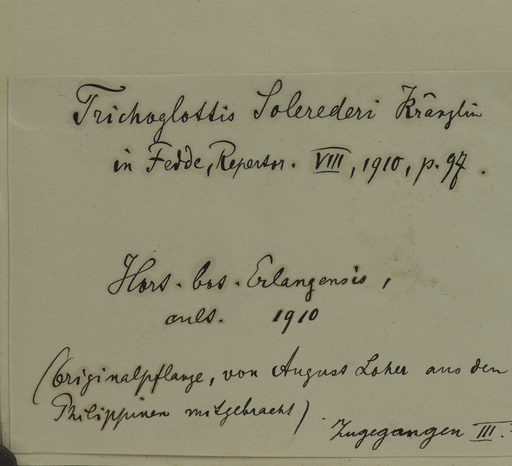 Trichoglottis Solerederi Kränzlin
in Fedde, Repertor. VIII, 1910, p. 97.
Hort. bot. Erlangensis,
cult. 1910
(Originalpflanze, von August Loher aus den
Philippinen mitgebracht)
Zugegangen III.